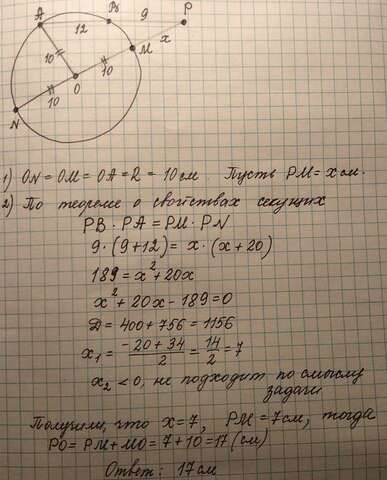 A B 9 P
12 M x
10 10
O
10
N
1) ON = OM = OA = R = 10 см. Пусть PM = x см.
2) По теореме о свойствах секущих
PB · PA = PM · PN
9 · (9+12) = x · (x + 20)
189 = x² + 20x
x² + 20x - 189 = 0
D = 400 + 756 = 1156
x₁ = (-20 + 34)/2 = 14/2 = 7
x₂ < 0, не подходит по смыслу
задачи
Получили, что x = 7, PM = 7 см, тогда
PO = PM + MO = 7 + 10 = 17 (см)
Ответ: 17 см